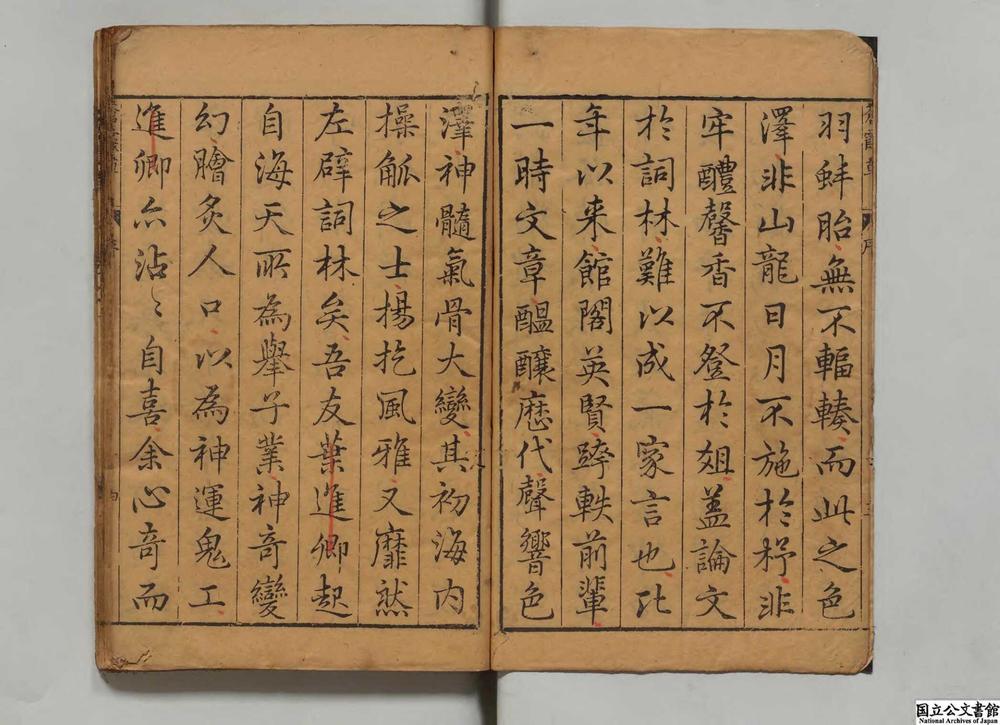 羽蚌胎無不輻輳而此之色
澤非山龍日月不施於杼非
牢醴馨香不登於俎盖論文
於詞林難以成一家言也比
年以来館閣英賢跨軼前輩
一時文章醞釀歷代聲響色
澤神髓氣骨大變其初海内
操觚之士揚扢風雅又靡然
左辟詞林矣吾友葉進卿起
自海天所為舉子業神奇變
幻膾炙人口以為神運鬼工
進卿亦沾〻自喜余心奇而
蒼霞草
序
三
国立公文書館
National Archives of Japan